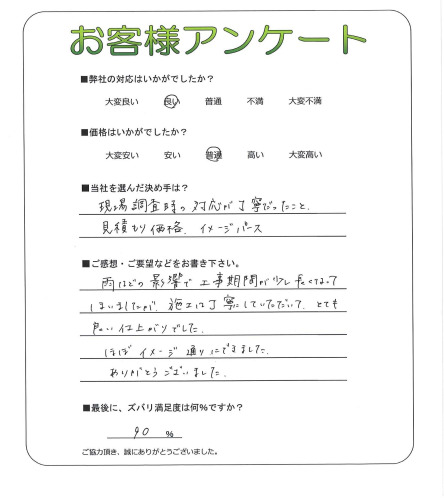 お客様アンケート
■弊社の対応はいかがでしたか?
大変良い 良い 普通 不満 大変不満
■価格はいかがでしたか?
大変安い 安い 普通 高い 大変高い
■当社を選んだ決め手は?
現場調査時の対応が丁寧だったこと、
見積もり価格、イメージパース
■ご感想・ご要望などをお書き下さい。
雨などの影響で工事期間が少し長くなって
しまいましたが、施工は丁寧にしていただいて、とても
良い仕上がりでした。
ほぼイメージ通りにできました。
ありがとうございました。
■最後に、ズバリ満足度は何%ですか?
90 %
ご協力頂き、誠にありがとうございました。